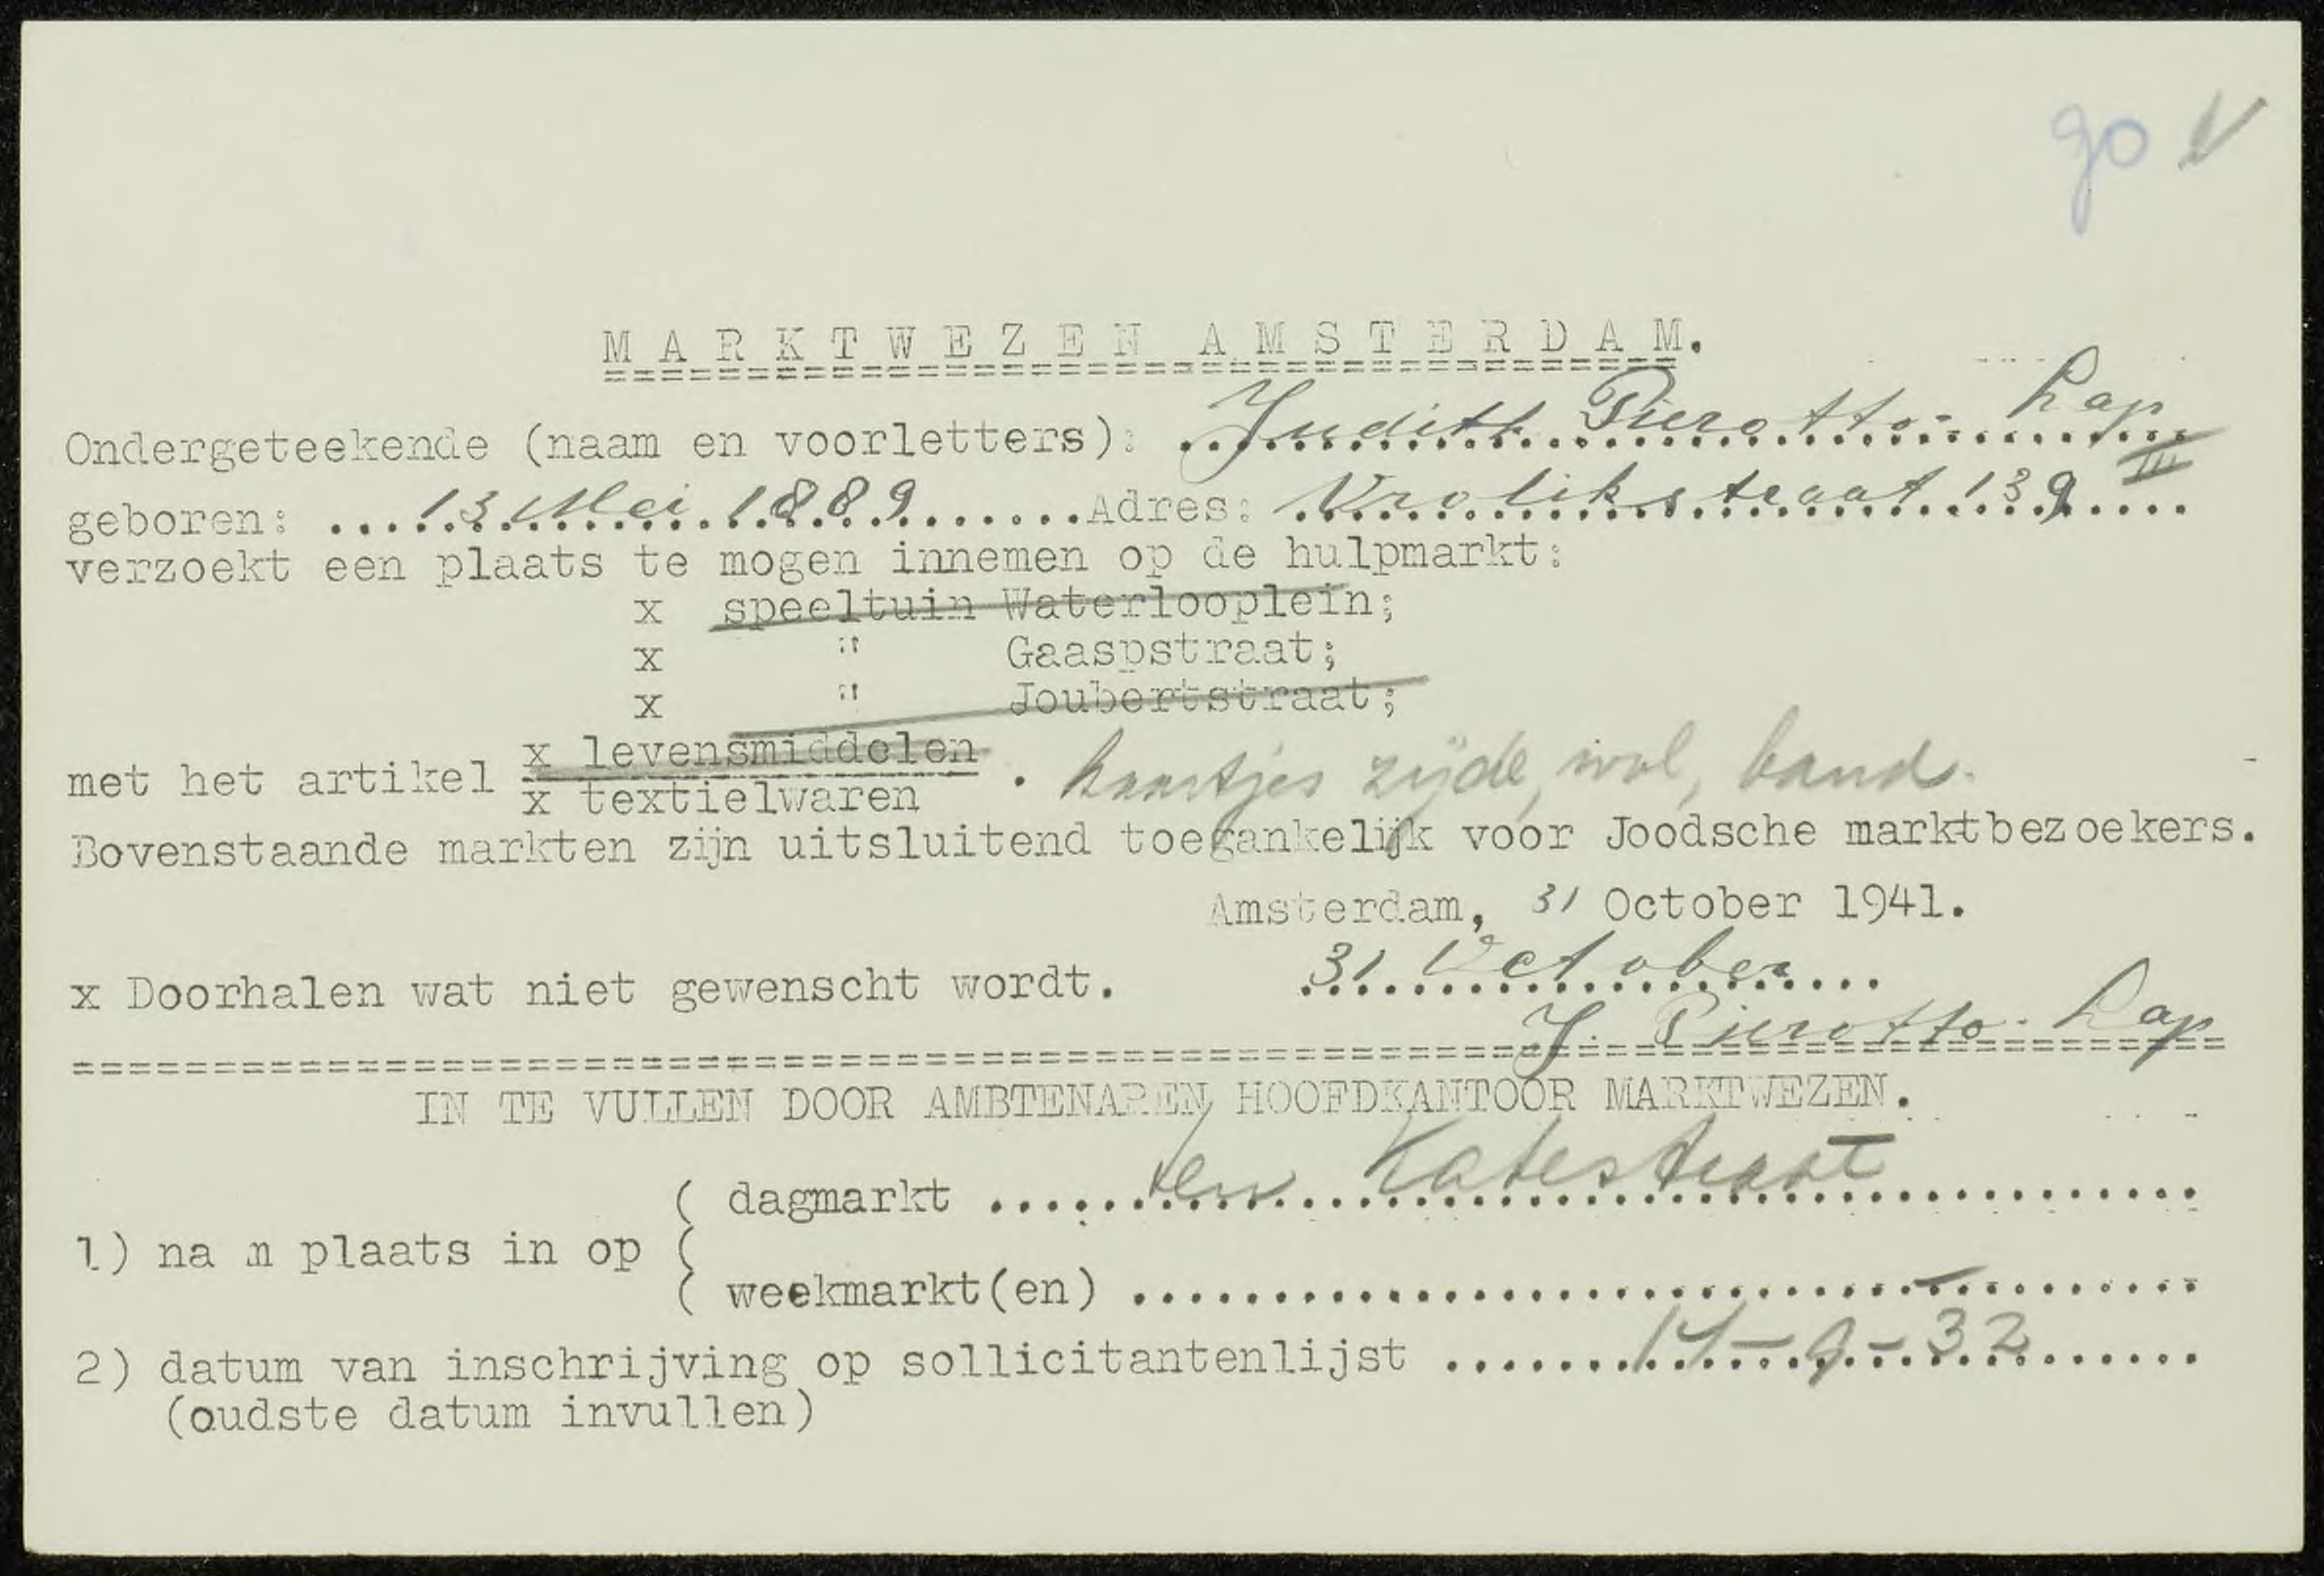 go V
MARKTWEZEN AMSTERDAM.
Ondergeteekende (naam en voorletters): Judith Pierotto- Lap
geboren: 13 Mei 1889 Adres: Vrolikstraat 139 III
verzoekt een plaats te mogen innemen op de hulpmarkt:
x speeltuin Waterlooplein;
x " Gaaspstraat;
x " Joubertstraat;
met het artikel x levensmiddelen
x textielwaren . kaartjes zijde, wol, band.
Bovenstaande markten zijn uitsluitend toegankelijk voor Joodsche marktbezoekers.
Amsterdam, 31 October 1941.
x Doorhalen wat niet gewenscht wordt. 31 October
J. Pierotto- Lap
IN TE VULLEN DOOR AMBTENAREN HOOFDKANTOOR MARKTWEZEN.
( dagmarkt ten Katestraat
1) na m plaats in op (
( weekmarkt(en) —
2) datum van inschrijving op sollicitantenlijst 14-9-32
(oudste datum invullen)